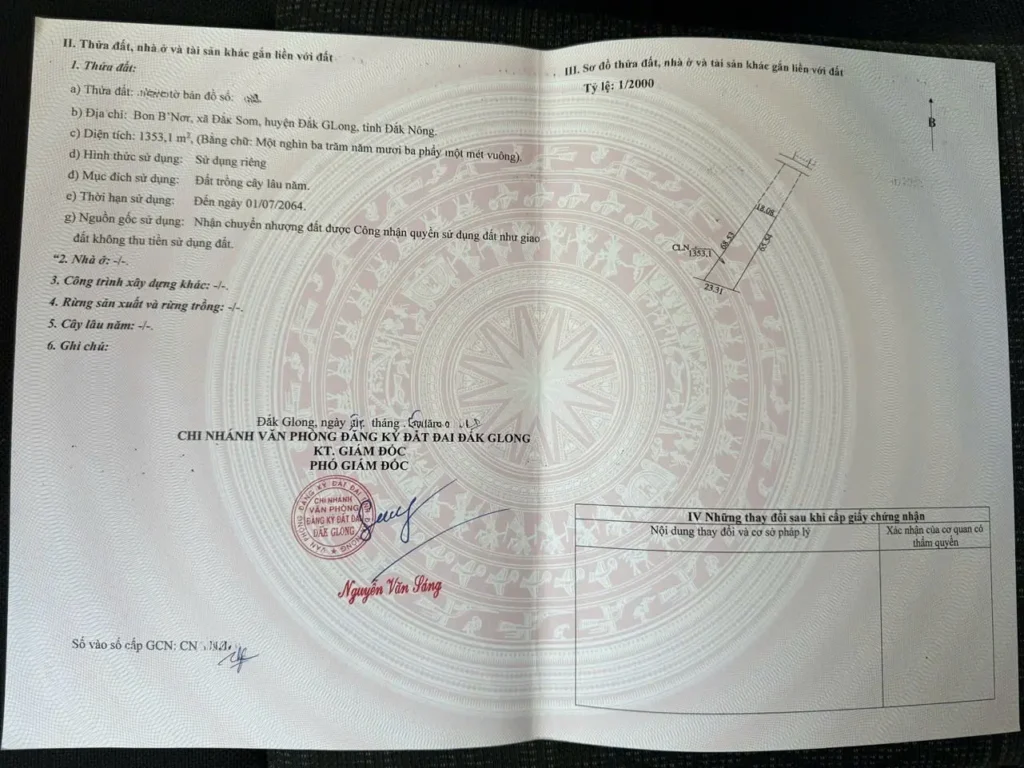 II. Thửa đất, nhà ở và tài sản khác gắn liền với đất
1. Thửa đất:
a) Thửa đất: tờ bản đồ số:
b) Địa chỉ: Bon B'Nơr, xã Đắk Som, huyện Đắk GLong, tỉnh Đắk Nông.
c) Diện tích: 1353,1 m², (Bằng chữ: Một nghìn ba trăm năm mươi ba phẩy một mét vuông).
d) Hình thức sử dụng: Sử dụng riêng
đ) Mục đích sử dụng: Đất trồng cây lâu năm.
e) Thời hạn sử dụng: Đến ngày 01/07/2064.
g) Nguồn gốc sử dụng: Nhận chuyển nhượng đất được Công nhận quyền sử dụng đất như giao
đất không thu tiền sử dụng đất.
"2. Nhà ở: -/-.
3. Công trình xây dựng khác: -/-.
4. Rừng sản xuất và rừng trồng: -/-.
5. Cây lâu năm: -/-.
6. Ghi chú:
Đắk Glong, ngày tháng
CHI NHÁNH VĂN PHÒNG ĐĂNG KÝ ĐẤT ĐAI ĐẮK GLONG
KT. GIÁM ĐỐC
PHÓ GIÁM ĐỐC
CHI NHÁNH
VĂN PHÒNG
ĐĂNG KÝ ĐẤT ĐAI
ĐẮK GLONG
Nguyễn Văn Sáng
Số vào sổ cấp GCN: CN
III. Sơ đồ thửa đất, nhà ở và tài sản khác gắn liền với đất
Tỷ lệ: 1/2000
B
18.08
68.53
65.54
CLN
1353,1
23.31
IV Những thay đổi sau khi cấp giấy chứng nhận
Nội dung thay đổi và cơ sở pháp lý
Xác nhận của cơ quan có
thẩm quyền